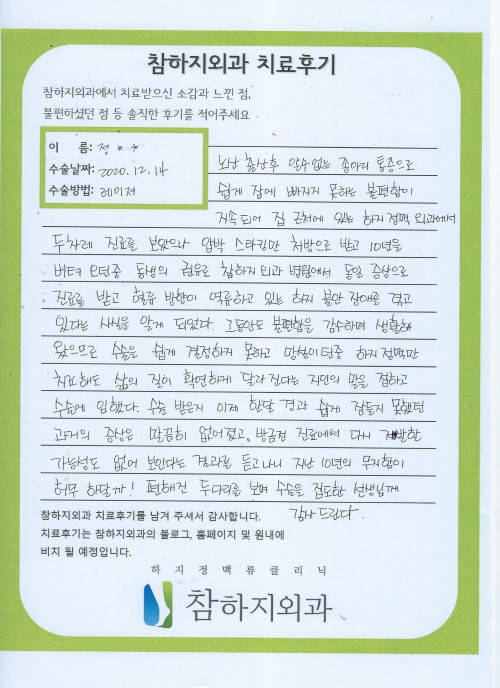 참하지외과 치료후기
참하지외과에서 치료받으신 소감과 느낀 점,
불편하셨던 점 등 솔직한 후기를 적어주세요
이 름: 정 * *
수술날짜: 2020. 12. 14
수술방법: 레이저
노산 출산후 알수없는 종아리 통증으로
쉽게 잠에 빠지지 못하는 불편함이
지속되어 집 근처에 있는 하지정맥 외과에서
두차례 진료를 보았으나 압박 스타킹만 처방으로 받고 10년을
버텨 오던중 동생의 권유로 참하지외과 병원에서 동일 증상으로
진료를 받고 혈류 방향이 역류하고 있는 하지 불안 장애를 겪고
있다는 사실을 알게 되었다. 그동안도 불편함을 감수하며 생활해
왔으므로 수술을 쉽게 결정하지 못하고 망설이던중 하지정맥만
치료해도 삶의 질이 확연하게 달라진다는 지인의 말을 접하고
수술에 임했다. 수술 받은지 이제 한달 경과 쉽게 잠들지 못했던
과거의 증상은 말끔히 없어졌고, 방금전 진료에서 다시 재발한
가능성도 없어 보인다는 결과를 듣고나니 지난 10년의 무지함이
허무 하달까! 편해진 두다리를 보며 수술을 집도한 선생님께
감사 드린다.
참하지외과 치료후기를 남겨 주셔서 감사합니다.
치료후기는 참하지외과의 블로그, 홈페이지 및 원내에
비치 될 예정입니다.
하지정맥류클리닉
참하지외과